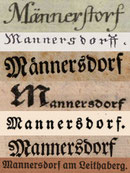 Männerstorf
Mannersdorff.
Männersdorf
Mannersdorf
Mannersdorf.
Mannersdorf
Mannersdorf am Leithaberg.